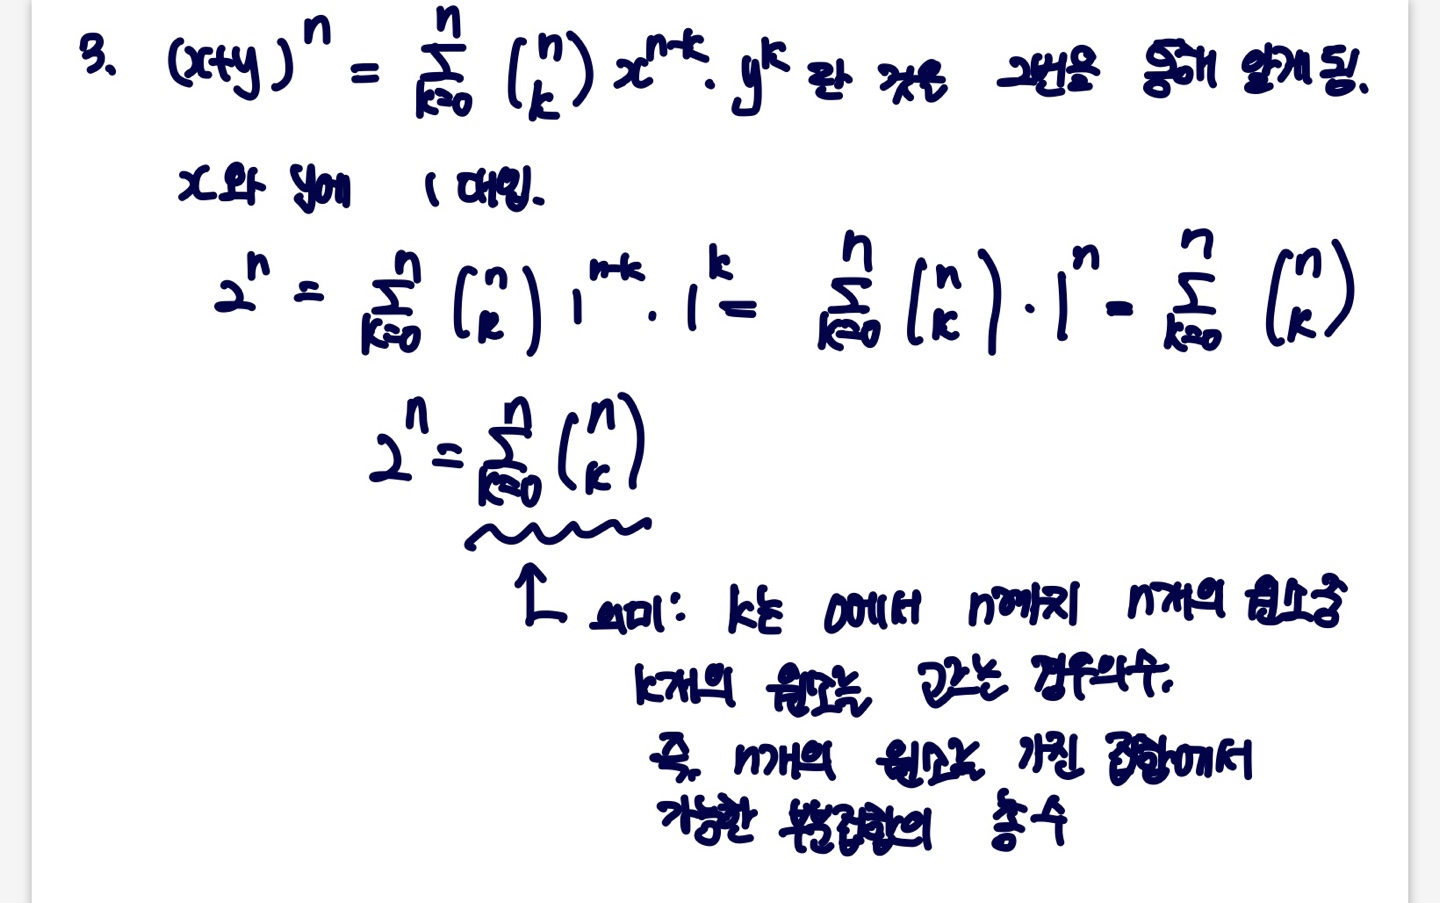 3. (x+y)^n = \sum_{k=0}^{n} \binom{n}{k} x^{n-k} \cdot y^k 란 것은 2번을 통해 알게 됨.
x와 y에 1 대입.
2^n = \sum_{k=0}^{n} \binom{n}{k} 1^{n-k} \cdot 1^k = \sum_{k=0}^{n} \binom{n}{k} \cdot 1^n = \sum_{k=0}^{n} \binom{n}{k}
2^n = \sum_{k=0}^{n} \binom{n}{k}
↑ 의미: k는 0에서 n까지 n개의 원소중
k개의 원소를 고르는 경우의수.
즉, n개의 원소를 가진 집합에서
가능한 부분집합의 총 수